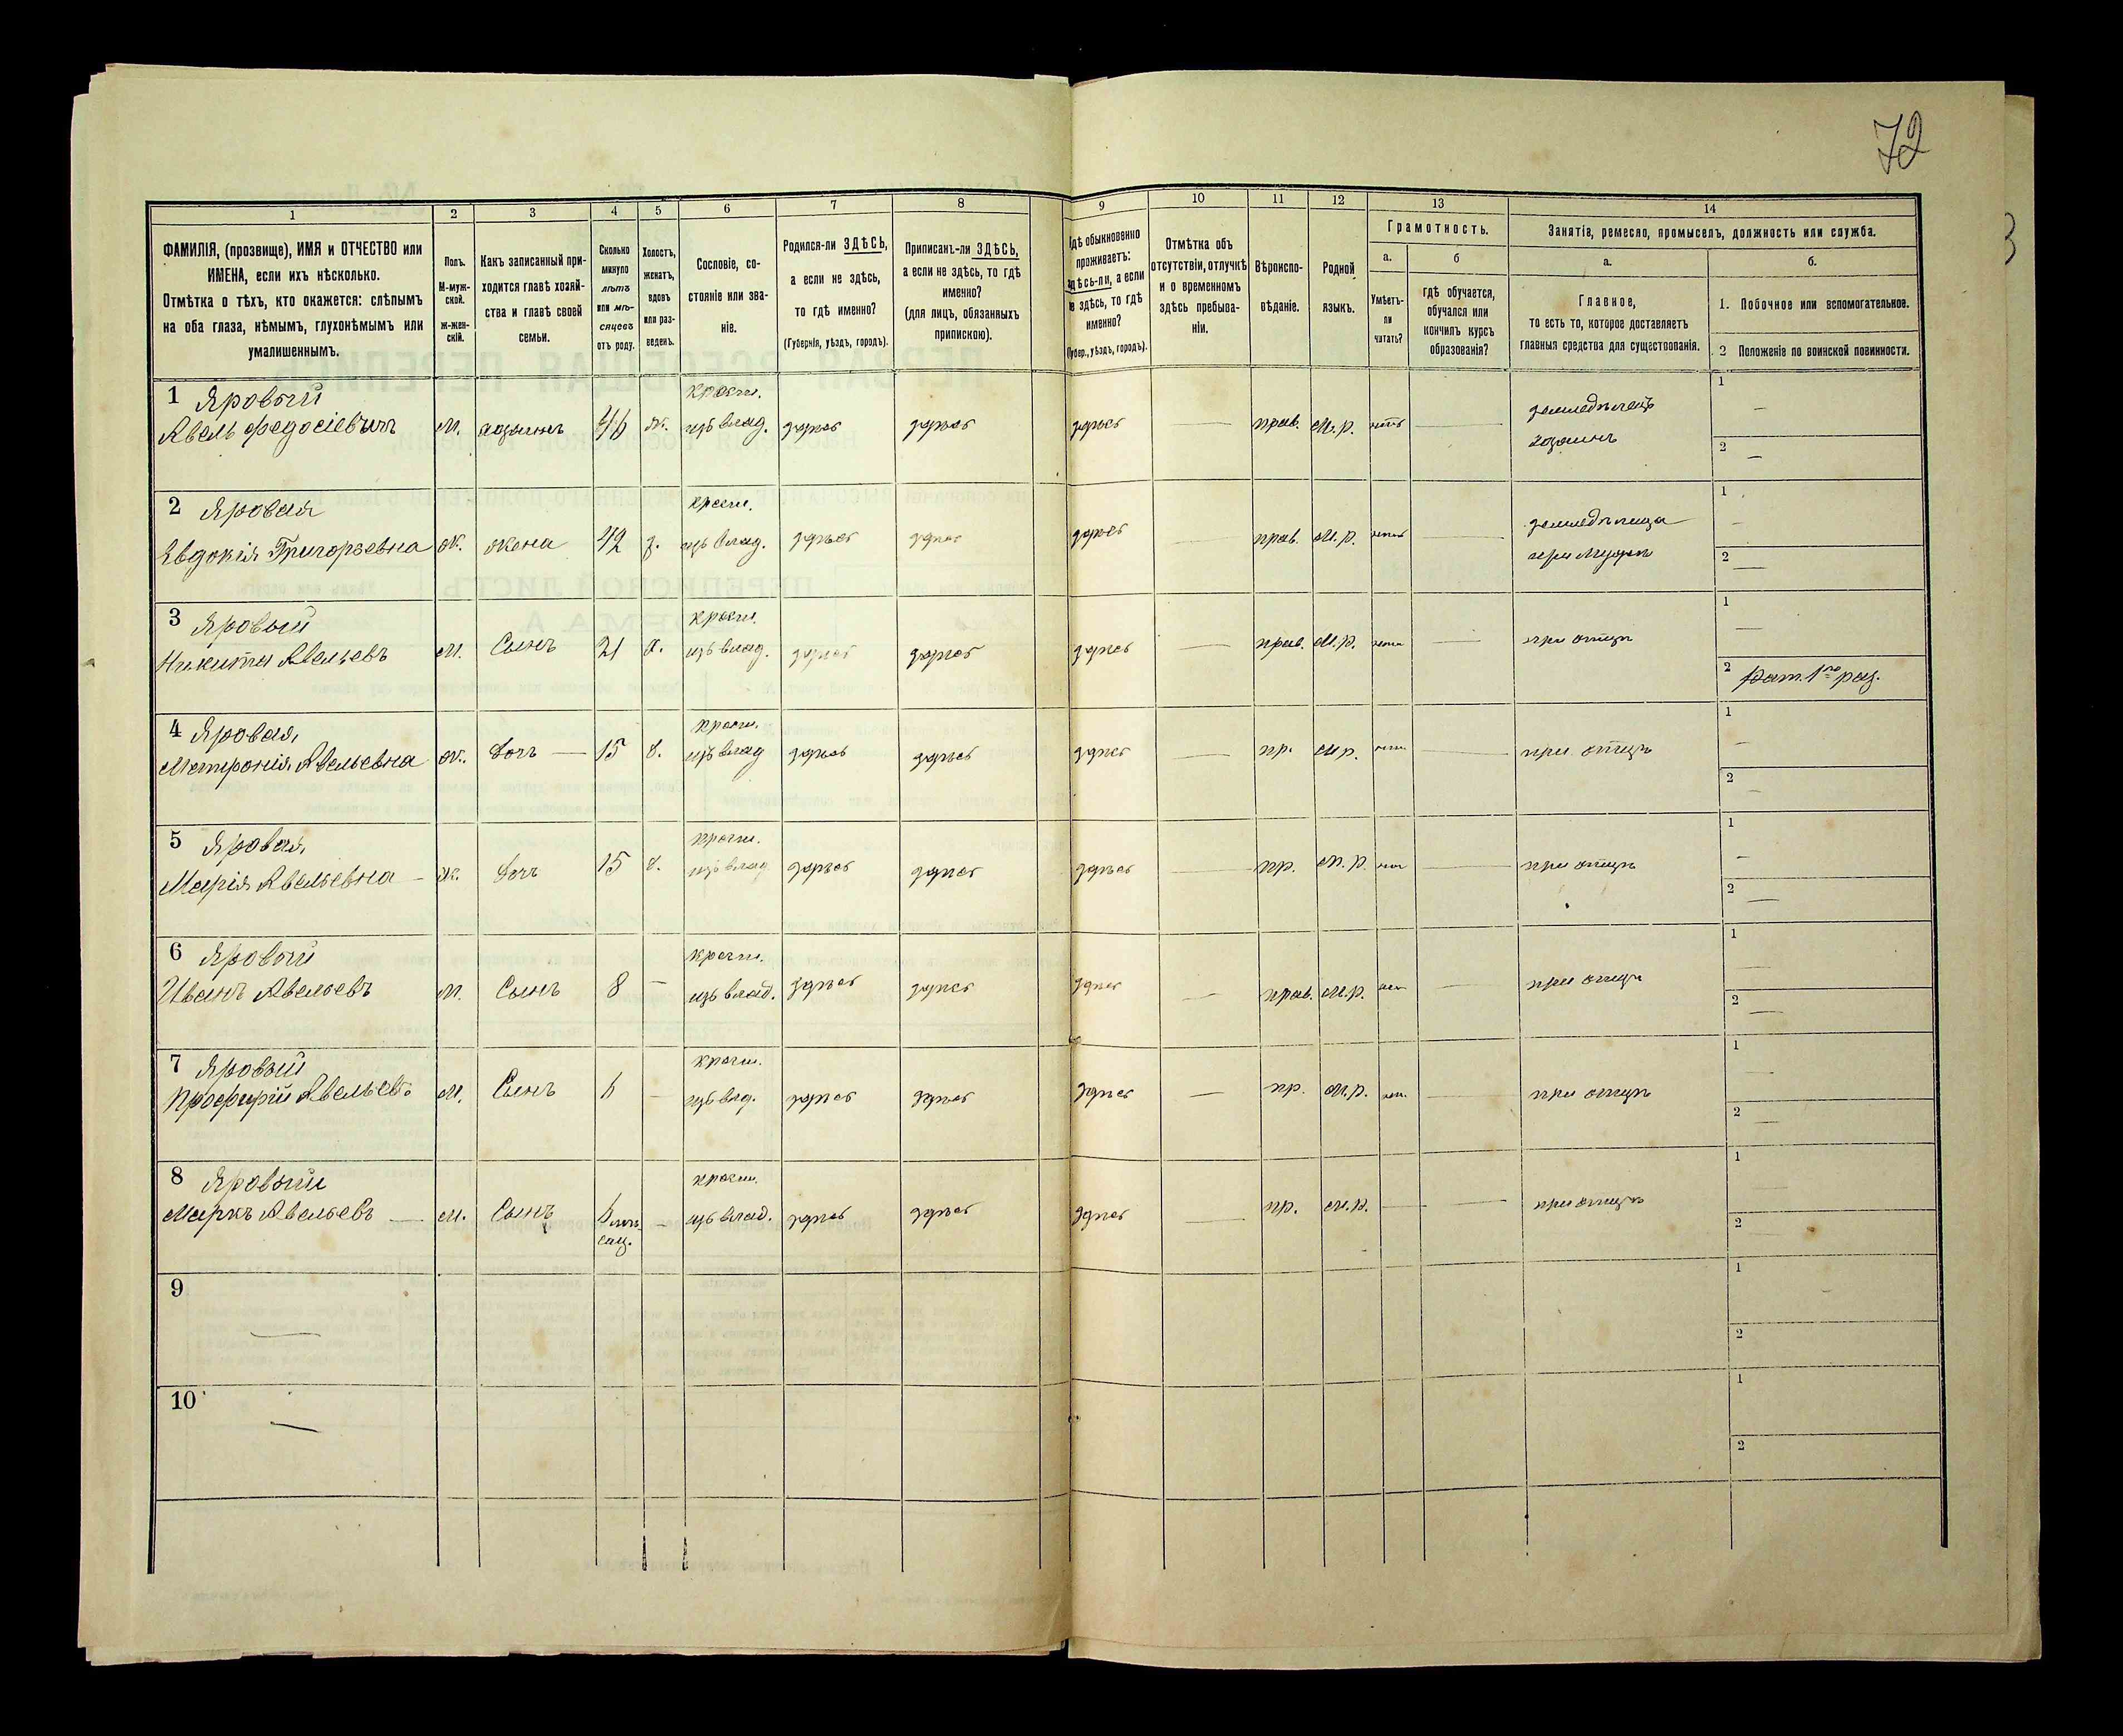 72
1
2
3
4
5
6
7
8
9
10
11
12
13
14
ФАМИЛІЯ, (прозвище), ИМЯ и ОТЧЕСТВО или
ИМЕНА, если ихъ нѣсколько.
Отмѣтка о тѣхъ, кто окажется: слѣпымъ
на оба глаза, нѣмымъ, глухонѣмымъ или
умалишеннымъ.
Полъ.
М-муж-
ской.
ж-жен-
скій.
Какъ записанный при-
ходится главѣ хозяй-
ства и главѣ своей
семьи.
Сколько
минуло
лѣтъ
или мѣ-
сяцевъ
отъ роду.
Холостъ,
женатъ,
вдовъ
или раз-
веденъ.
Сословіе, со-
стояніе или зва-
ніе.
Родился-ли ЗДѢСЬ,
а если не здѣсь,
то гдѣ именно?
(Губернія, уѣздъ, городъ).
Приписанъ-ли ЗДѢСЬ,
а если не здѣсь, то гдѣ
именно?
(для лицъ, обязанныхъ
припискою).
гдѣ обыкновенно
проживаетъ:
здѣсь-ли, а если
не здѣсь, то гдѣ
именно?
(Губер., уѣздъ, городъ).
Отмѣтка объ
отсутствіи, отлучкѣ
и о временномъ
здѣсь пребыва-
ніи.
Вѣроиспо-
вѣданіе.
Родной
языкъ.
Грамотность.
а.
б
Умѣетъ-
ли
читать?
гдѣ обучается,
обучался или
кончилъ курсъ
образованія?
Занятіе, ремесло, промыселъ, должность или служба.
а.
б.
Главное,
то есть то, которое доставляетъ
главныя средства для существованія.
1. Побочное или вспомогательное.
2 Положеніе по воинской повинности.
1 Яровый крест. земледѣлецъ 1 —
Авель Федосіевичъ м. хозяинъ 46 ж. изъ влад. здѣсь здѣсь здѣсь — прав. м.р. нѣтъ — хозяинъ 2 —
2 Яровая крест. 1 —
Евдокія Григорьевна ж. жена 42 з. изъ влад. здѣсь здѣсь здѣсь — прав. м.р. нѣтъ — при мужѣ 2 —
3 Яровый крест. 1 —
Никита Авельевъ м. Сынъ 21 х. изъ влад. здѣсь здѣсь здѣсь — прав. м.р. нѣтъ — при отцѣ 2 Рат. 1го раз.
4 Яровая крест. 1 —
Матронія Авельевна ж. Дочь — 15 д. изъ влад здѣсь здѣсь здѣсь — пр. м.р. нѣтъ — при отцѣ 2 —
5 Яровая крест. 1 —
Марія Авельевна — ж. Дочь 15 д. изъ влад здѣсь здѣсь здѣсь — пр. м.р. нѣт — при отцѣ 2 —
6 Яровый крест. 1 —
Иванъ Авельевъ м. Сынъ 8 — изъ влад. здѣсь здѣсь здѣсь — прав. м.р. нѣт — при отцѣ 2 —
7 Яровый крест. 1 —
Профирій Авельевъ м. Сынъ 6 — изъ влд. здѣсь здѣсь здѣсь — пр. м.р. нѣт. — при отцѣ 2 —
8 Яровый крест. 1 —
Маркъ Авельевъ — м. Сынъ 6 мѣ- — изъ влад. здѣсь здѣсь здѣсь — пр. м.р. — — при отцѣ 2 —
сяц.
9 — 1
2
10 — 1
2